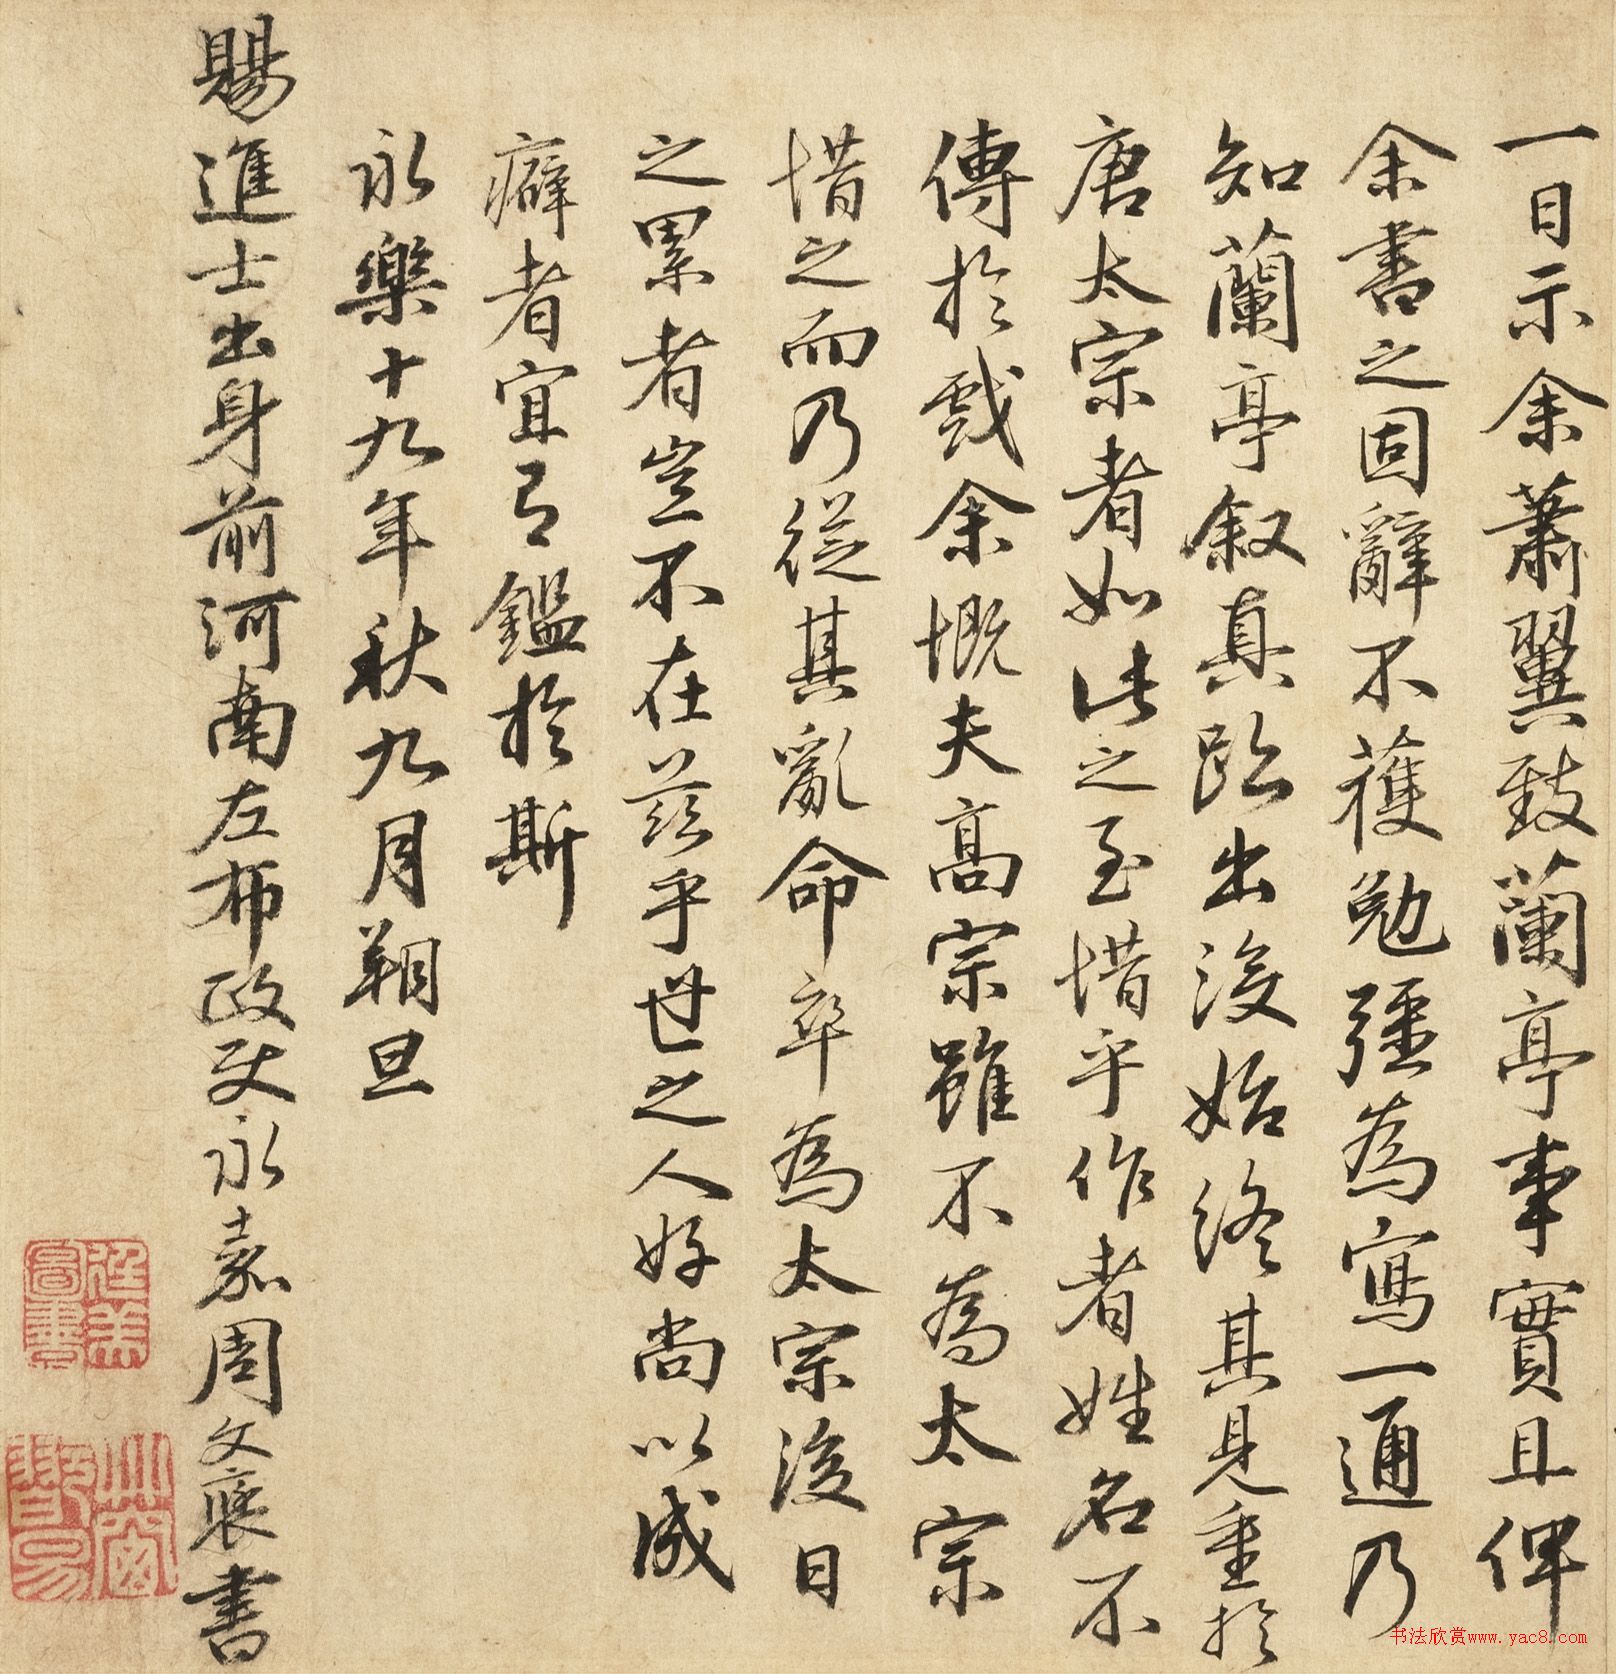 一日示余蕭翼致蘭亭事實且俾
余書之固辭不獲勉彊為寫一通乃
知蘭亭叙真跡出沒始終其見重於
唐太宗者如此之至惜乎作者姓名不
傳於戲余慨夫高宗雖不為太宗
惜之而乃從其亂命卒為太宗後日
之累者豈不在茲乎世之人好尚以成
癖者宜有鑑於斯
永樂十九年秋九月朔旦
賜進士出身前河南左布政史永嘉周文褒書
书法欣赏www.yac8.com